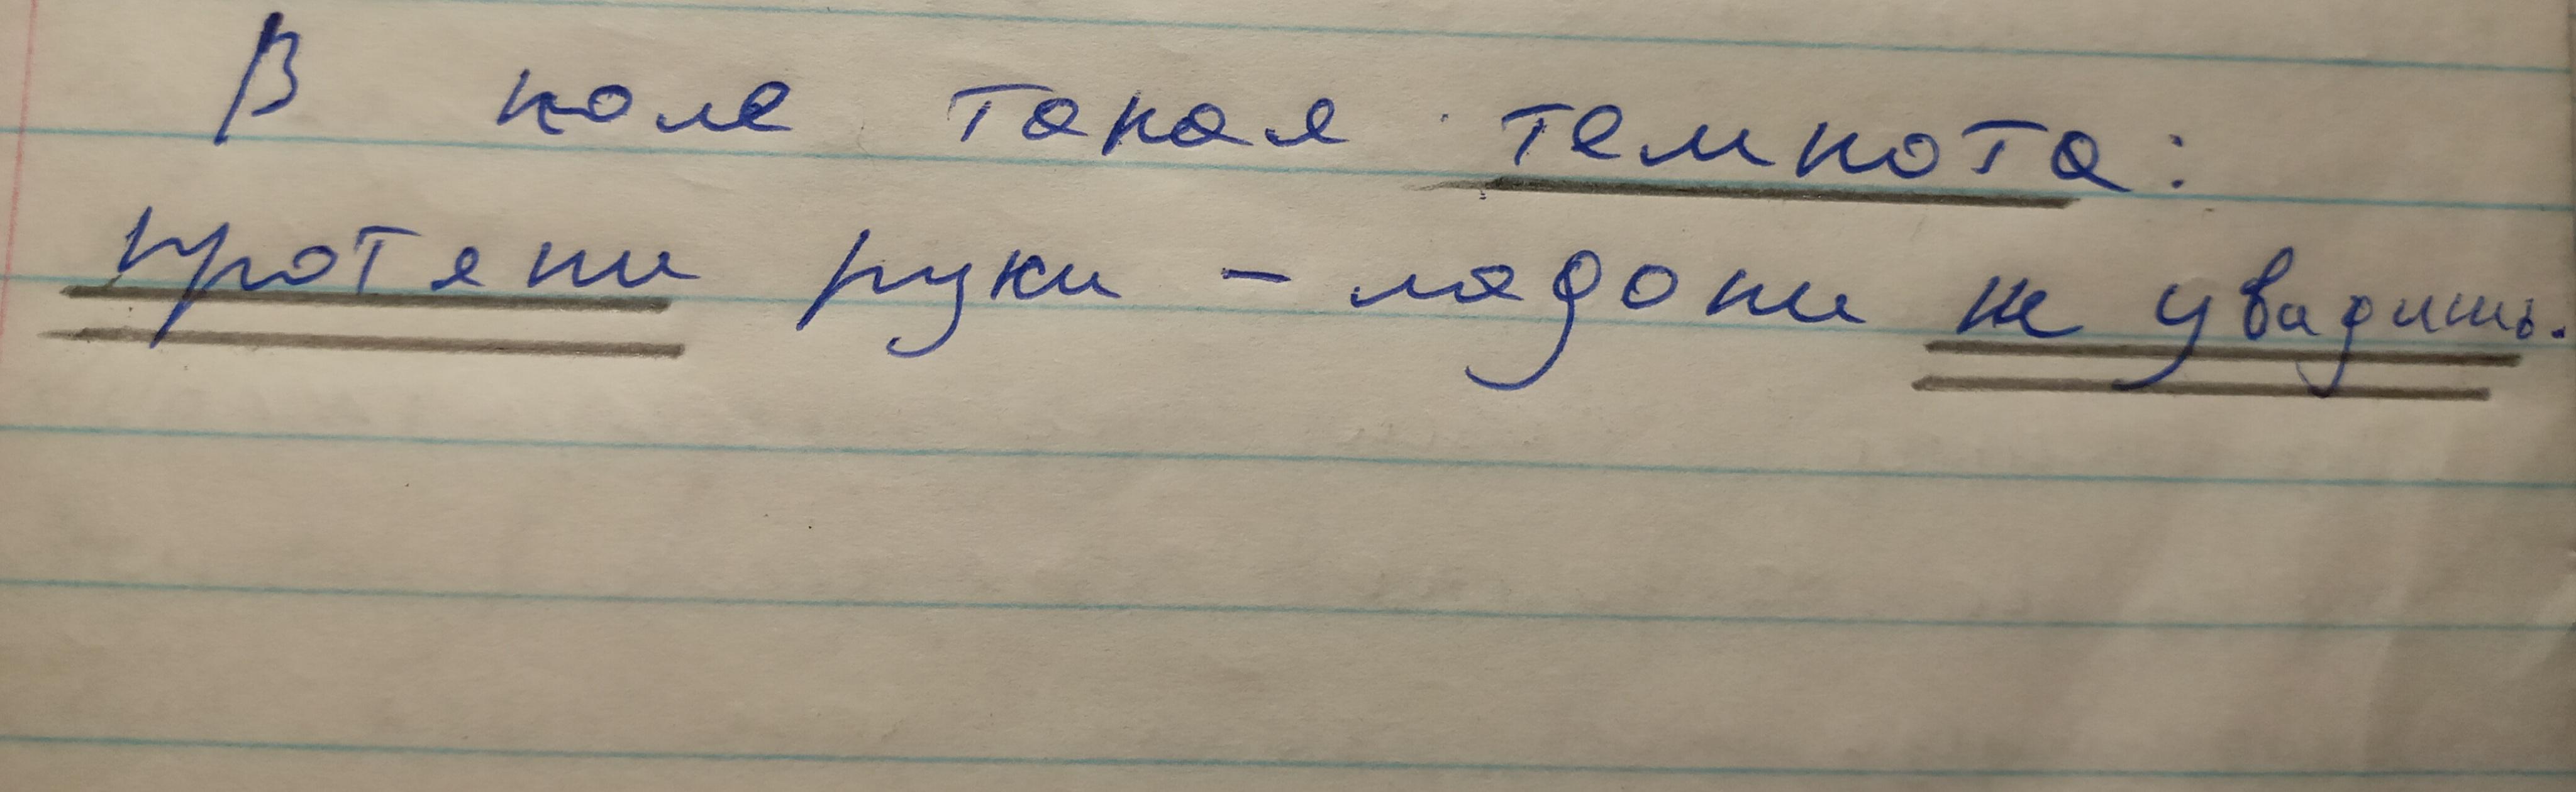 В поле такая темнота:
протяни руки - ладони не увидишь.